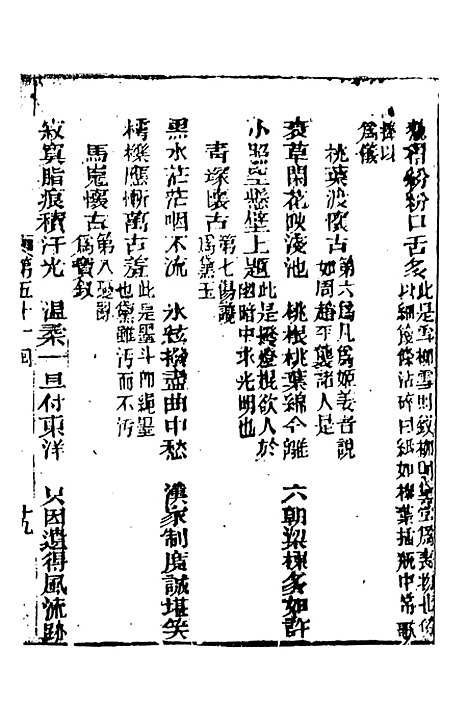 惹得紛紛口舌多
此是雪柳雪則絞柳則堂為喪物北俗
以細篾條沾碎白紙如柳葉插瓶中吊歌
擠以
為儀
桃葉渡懷古
第六為凡為姬妾者說
如周趙平襲諸人是
衰草閑花映淺池 桃根桃葉總分離 六朝梁棟多如許
小照空懸壁上題
此是撥燈棍欲人於
幽暗中求光明也
青塚懷古
第七傷讒
為黛玉
黑水茫茫咽不流 冰絃撥盡曲中愁 漢家制度誠堪笑
樗櫟應慚萬古羞
此是墨斗而繩墨
也黛雖汚而不汚
馬嵬懷古
第八憂讒
為寶釵
寂寞脂痕積汗光 溫柔一旦付東洋 只因遺得風流跡
第五十一回 十九